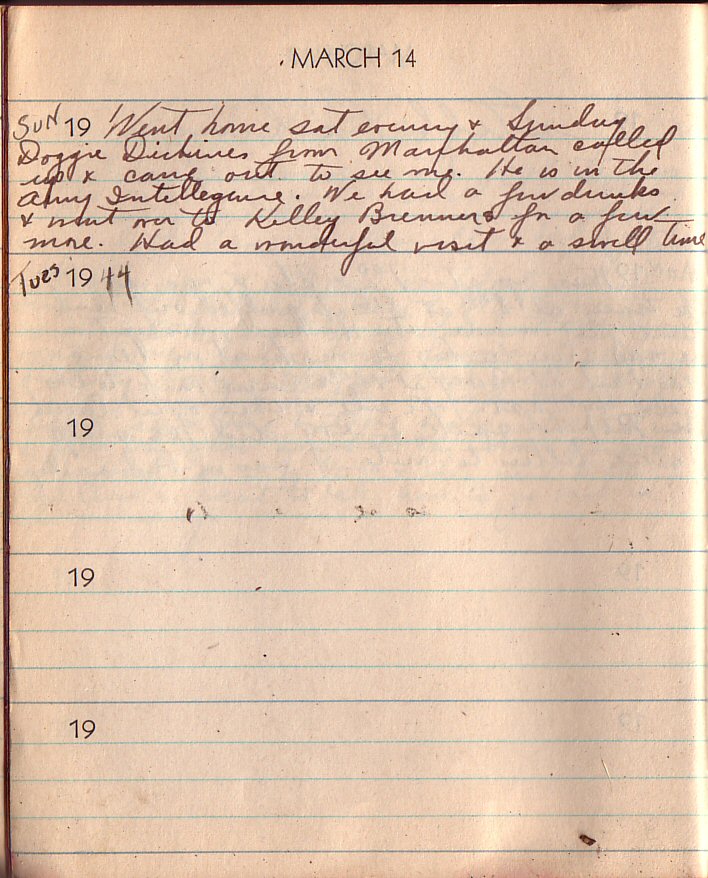 MARCH 14
SUN 19 Went home sat evening & Sunday
Doggie Dickines from Manhattan called
up & came out to see me. He is in the
army Intellegence. We had a few drinks
& went over to Kelley Brenners for a few
more. Had a wonderful visit & a swell time
Tues 1944
19
19
19